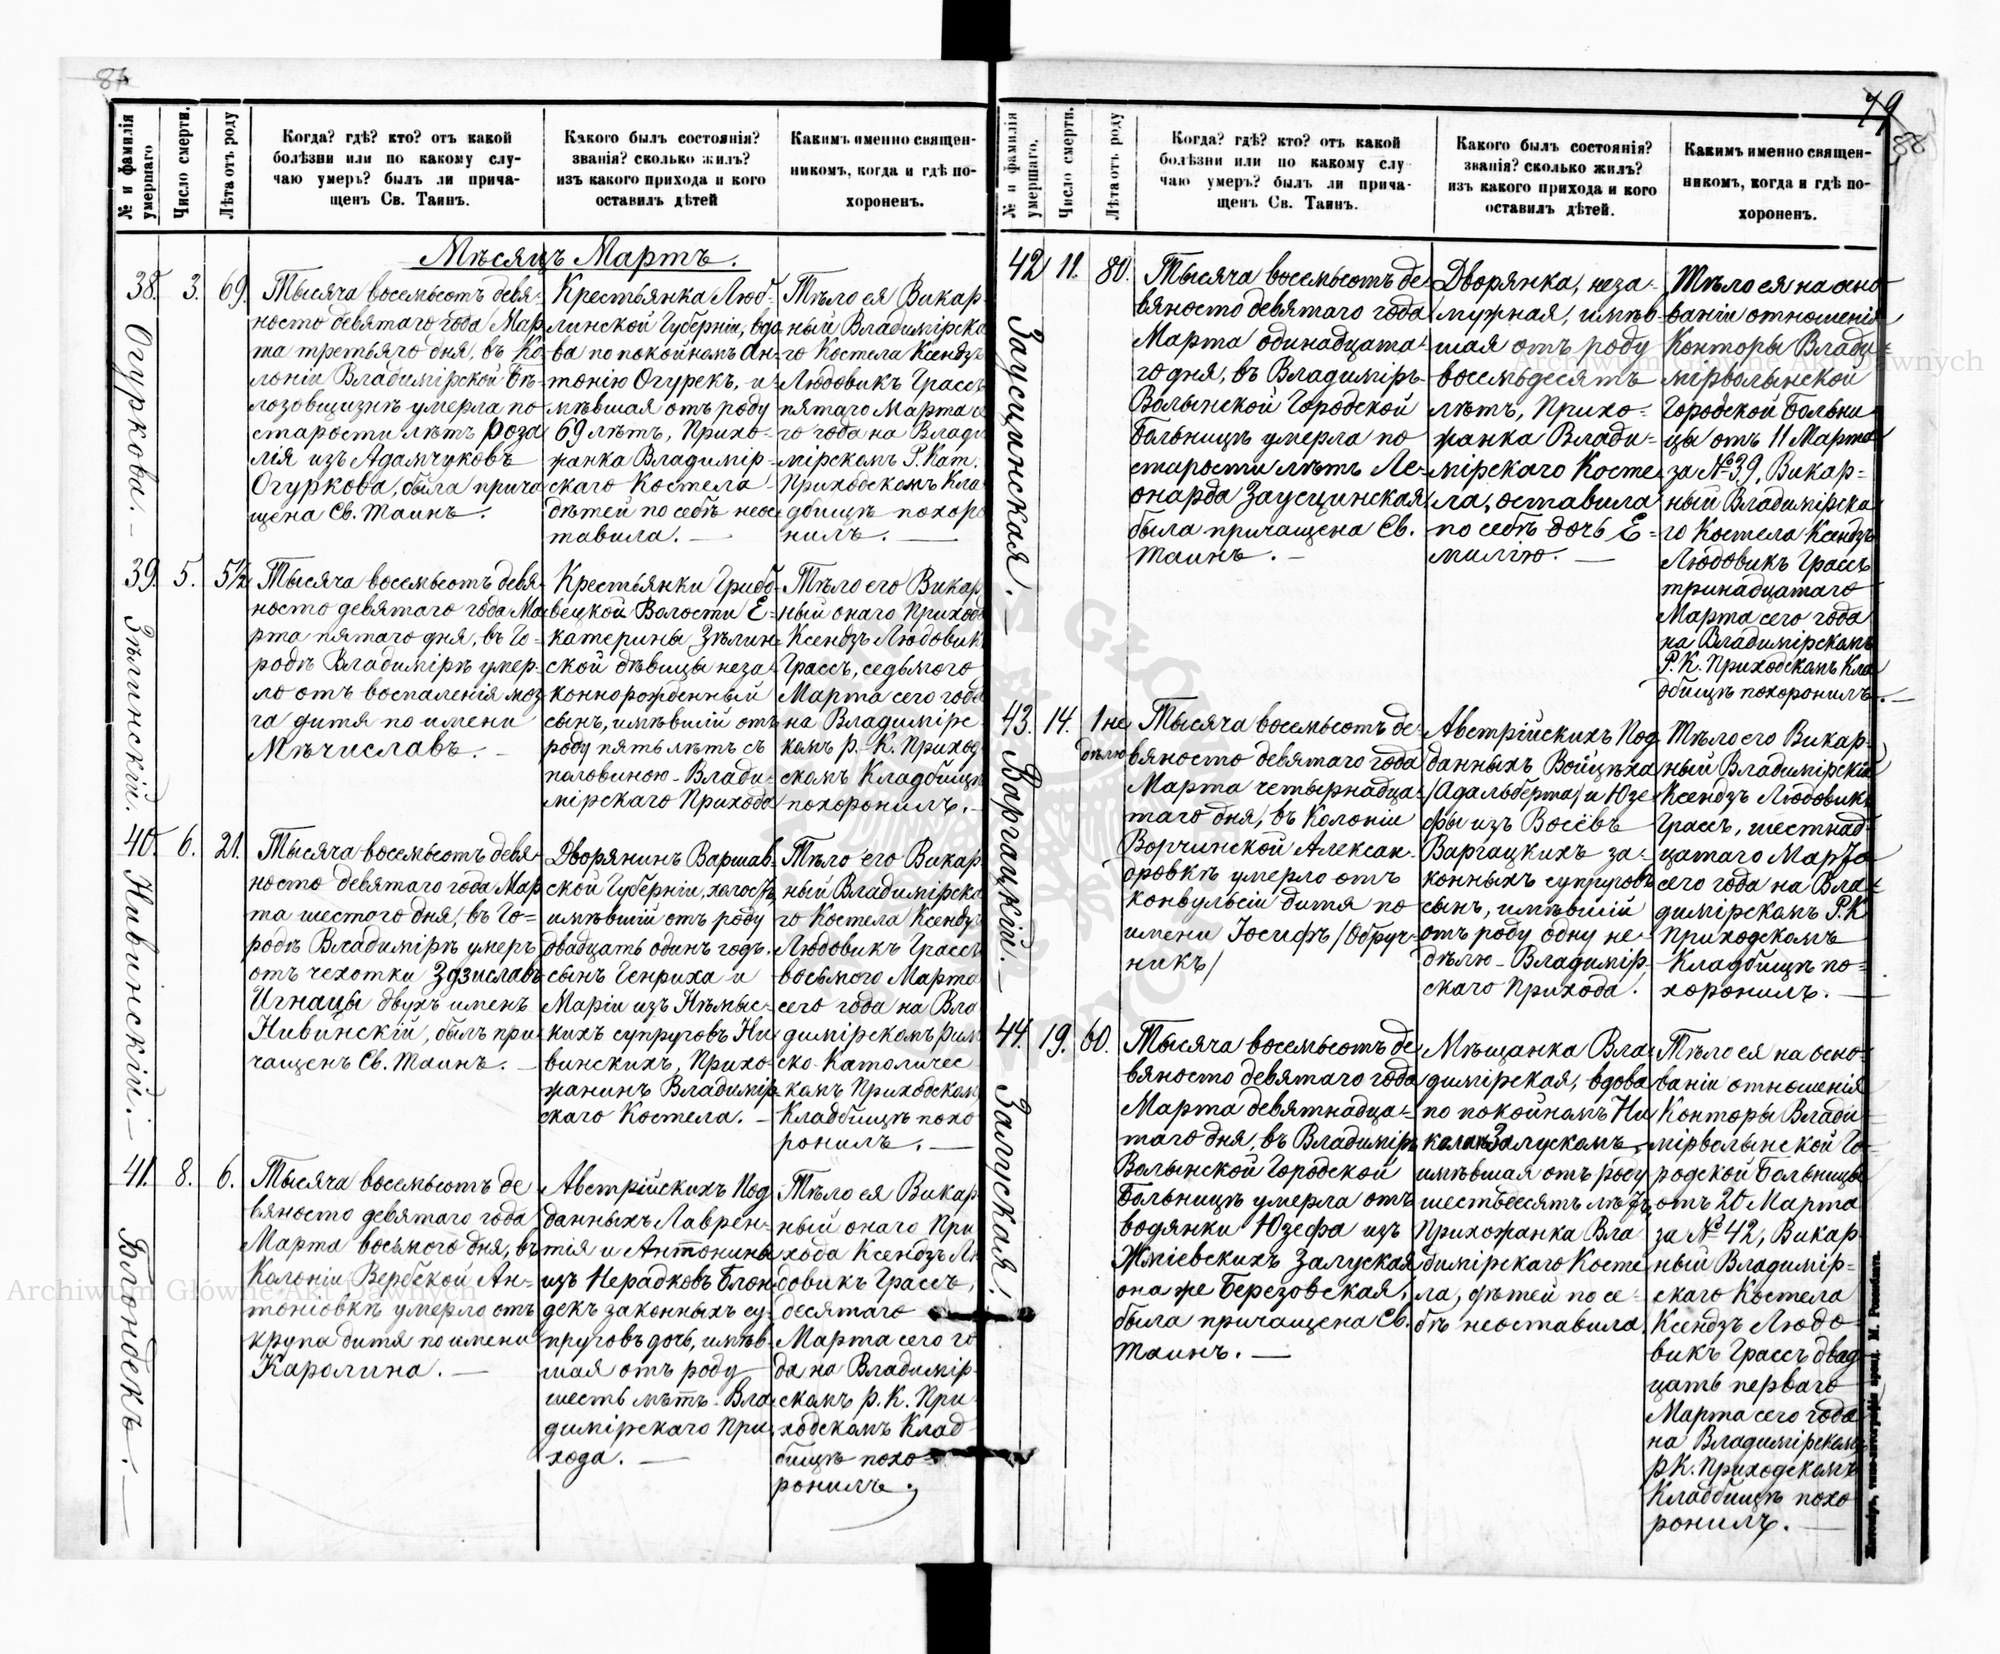 87
79
88
№ и фамилія умершаго
Число смерти.
Лѣта отъ роду
Когда? гдѣ? кто? отъ какой
болѣзни или по какому слу-
чаю умеръ? былъ ли прича-
щенъ Св. Таинъ.
Какого былъ состоянія?
званія? сколько жилъ?
изъ какого прихода и кого
оставилъ дѣтей
Какимъ именно священ-
никомъ, когда и гдѣ по-
хороненъ.
Мѣсяцъ Мартъ.
38.
Огуркова.
3.
69.
Тысяча восемьсотъ девя-
носто девятаго года Мар
та третьяго дня, въ Ко
лоніи Владимірской Бѣ-
лозовщизнѣ умерла по
старости лѣтъ Роза
лія изъ Адамчуковъ
Огуркова, была прича
щена Св. Таинъ.
Крестьянка Люб-
линской Губерніи, вдо
ва по покойномъ Ан-
тонію Огурекъ, и-
мѣвшая отъ роду
69 лѣтъ, Прихо-
жанка Владимір-
скаго Костела
дѣтей по себѣ неос
тавила.
Тѣло ея Викар-
ный Владимірска
го Костела Ксендзъ
Людовикъ Грассъ
пятаго Марта се
го года на Влади
мірскомъ Р. Кат.
Приходскомъ Кла
дбищѣ похоро
нилъ.
39.
Зѣлинскій.
5.
5½
Тысяча восемьсотъ девя-
носто девятаго года Ма
рта пятаго дня, въ Го-
родѣ Владимірѣ умер-
ло отъ воспаленія моз
га дитя по имени
Мѣчиславъ.
Крестьянки Грибо-
вецкой Волости Е-
катерины Зѣлин
ской дѣвицы неза-
коннорожденный
сынъ, имѣвшій отъ
роду пять лѣтъ съ
половиною - Влади-
мірскаго Прихода
Тѣло его Викар
ный онаго Прихода
Ксендзъ Людовикъ
Грассъ, седьмого
Марта сего года
на Владимірс-
комъ Р.-К. Приход
скомъ Кладбищѣ
похоронилъ.
40.
Нивинскій.
6.
21.
Тысяча восемьсотъ девя-
носто девятаго года Мар
та шестого дня, въ Го-
родѣ Владимірѣ умеръ
отъ чехотки Здзиславъ
Игнацы двухъ именъ
Нивинскій, былъ при
чащенъ Св. Таинъ.
Дворянинъ Варшав
ской Губерніи, холостъ
имѣвшій отъ роду
двадцать одинъ годъ.
сынъ Генриха и
Маріи изъ Нѣмыс-
кихъ супруговъ Ни
винскихъ, Прихо-
жанинъ Владимір-
скаго Костела.
Тѣло его Викар
ный Владимірска
го Костела Ксендзъ
Людовикъ Грассъ
восьмого Марта
сего года на Вла
димірскомъ Рим
ско-Католичес
комъ Приходскомъ
Кладбищѣ похо
ронилъ.
41.
Блондекъ.
8.
6.
Тысяча восемьсотъ де
вяносто девятаго года
Марта восьмого дня, въ
Колоніи Вербской Ан-
тоновкѣ умерло отъ
крупа дитя по имени
Каролина.
Австрійскихъ Под
данныхъ Лаврен-
тія и Антонины
изъ Нерадковъ Блон
декъ законныхъ су
пруговъ дочь, имѣв-
шая отъ роду
шесть лѣтъ. Вла
димірскаго При
хода.
Тѣло ея Викар
ный онаго При
хода Ксендзъ Лю
довикъ Грассъ,
десятаго
Марта сего го
да на Владимір
скомъ Р. К. При
ходскомъ Клад
бищѣ похо
ронилъ.
№ и фамилія умершаго.
Число смерти.
Лѣта отъ роду
Когда? гдѣ? кто? отъ какой
болѣзни или по какому слу
чаю умеръ? былъ ли прича-
щенъ Св. Таинъ.
Какого былъ состоянія?
званія? сколько жилъ?
изъ какого прихода и кого
оставилъ дѣтей.
Какимъ именно священ-
никомъ, когда и гдѣ по-
хороненъ.
42
Заусцинская.
11.
80.
Тысяча восемьсотъ де-
вяносто девятаго года
Марта одинадцата-
го дня, въ Владиміръ-
Волынской Городской
Больницѣ умерла по
старости лѣтъ Ле-
онарда Заусцинская
была причащена Св.
Таинъ.
Дворянка, неза-
мужная, имѣв
шая отъ роду
восемьдесятъ
лѣтъ, Прихо-
жанка Влади-
мірскаго Косте
ла, оставила
по себѣ дочь Е-
милію.
Тѣло ея на осно
ваніи отношенія
Конторы Влади-
мірволынской
Городской Больни
цы отъ 11 Марта
за № 39, Викар-
ный Владимірска
го Костела Ксендзъ
Людовикъ Грассъ
тринадцатаго
Марта сего года
на Владимірскомъ
Р. К. Приходскомъ Кла
дбищѣ похоронилъ.
43.
Варгацкій.
14.
1 не
дѣлю
Тысяча восемьсотъ де-
вяносто девятаго года
Марта четырнадца-
таго дня, въ Колоніи
Ворчинской Алексан-
дровкѣ умерло отъ
конвульсіи дитя по
имени Іосифъ /Обруч-
никъ/
Австрійскихъ Под
данныхъ Войцѣха
/Адальберта/ и Юзе
фы изъ Восёвъ
Варгацкихъ за-
конныхъ супруговъ
сынъ, имѣвшій
отъ роду одну не-
дѣлю - Владимір
скаго Прихода.
Тѣло его Викар-
ный Владимірскій
Ксендзъ Людовикъ
Грассъ, шестнад
цатаго Марта
сего года на Вла-
димірскомъ Р.К
Приходскомъ
Кладбищѣ по-
хоронилъ.
44.
Залуская.
19.
60.
Тысяча восемьсотъ де
вяносто девятаго года
Марта девятнадца-
таго дня, въ Владиміръ
Волынской Городской
Больницѣ умерла отъ
водянки Юзефа изъ
Жміевскихъ Залуская
она же Березовская,
была причащена Св.
Таинъ.
Мѣщанка Вла
димірская, вдова
по покойномъ Ни
колаѣ Залускомъ,
имѣвшая отъ роду
шестьдесятъ лѣтъ,
Прихожанка Вла
димірскаго Косте
ла, дѣтей по се-
бѣ неоставила.
Тѣло ея на осно-
ваніи отношенія
Конторы Влади
мірволынской Го-
родской Больницы
отъ 20 Марта
за № 42, Викар-
ный Владимір-
скаго Костела
Ксендзъ Людо-
викъ Грассъ двад
цать перваго
Марта сего года
на Владимірскомъ
Р.К. Приходскомъ
Кладбищѣ похо
ронилъ.
Archiwum Główne Akt Dawnych
Archiwum Główne Akt Dawnych